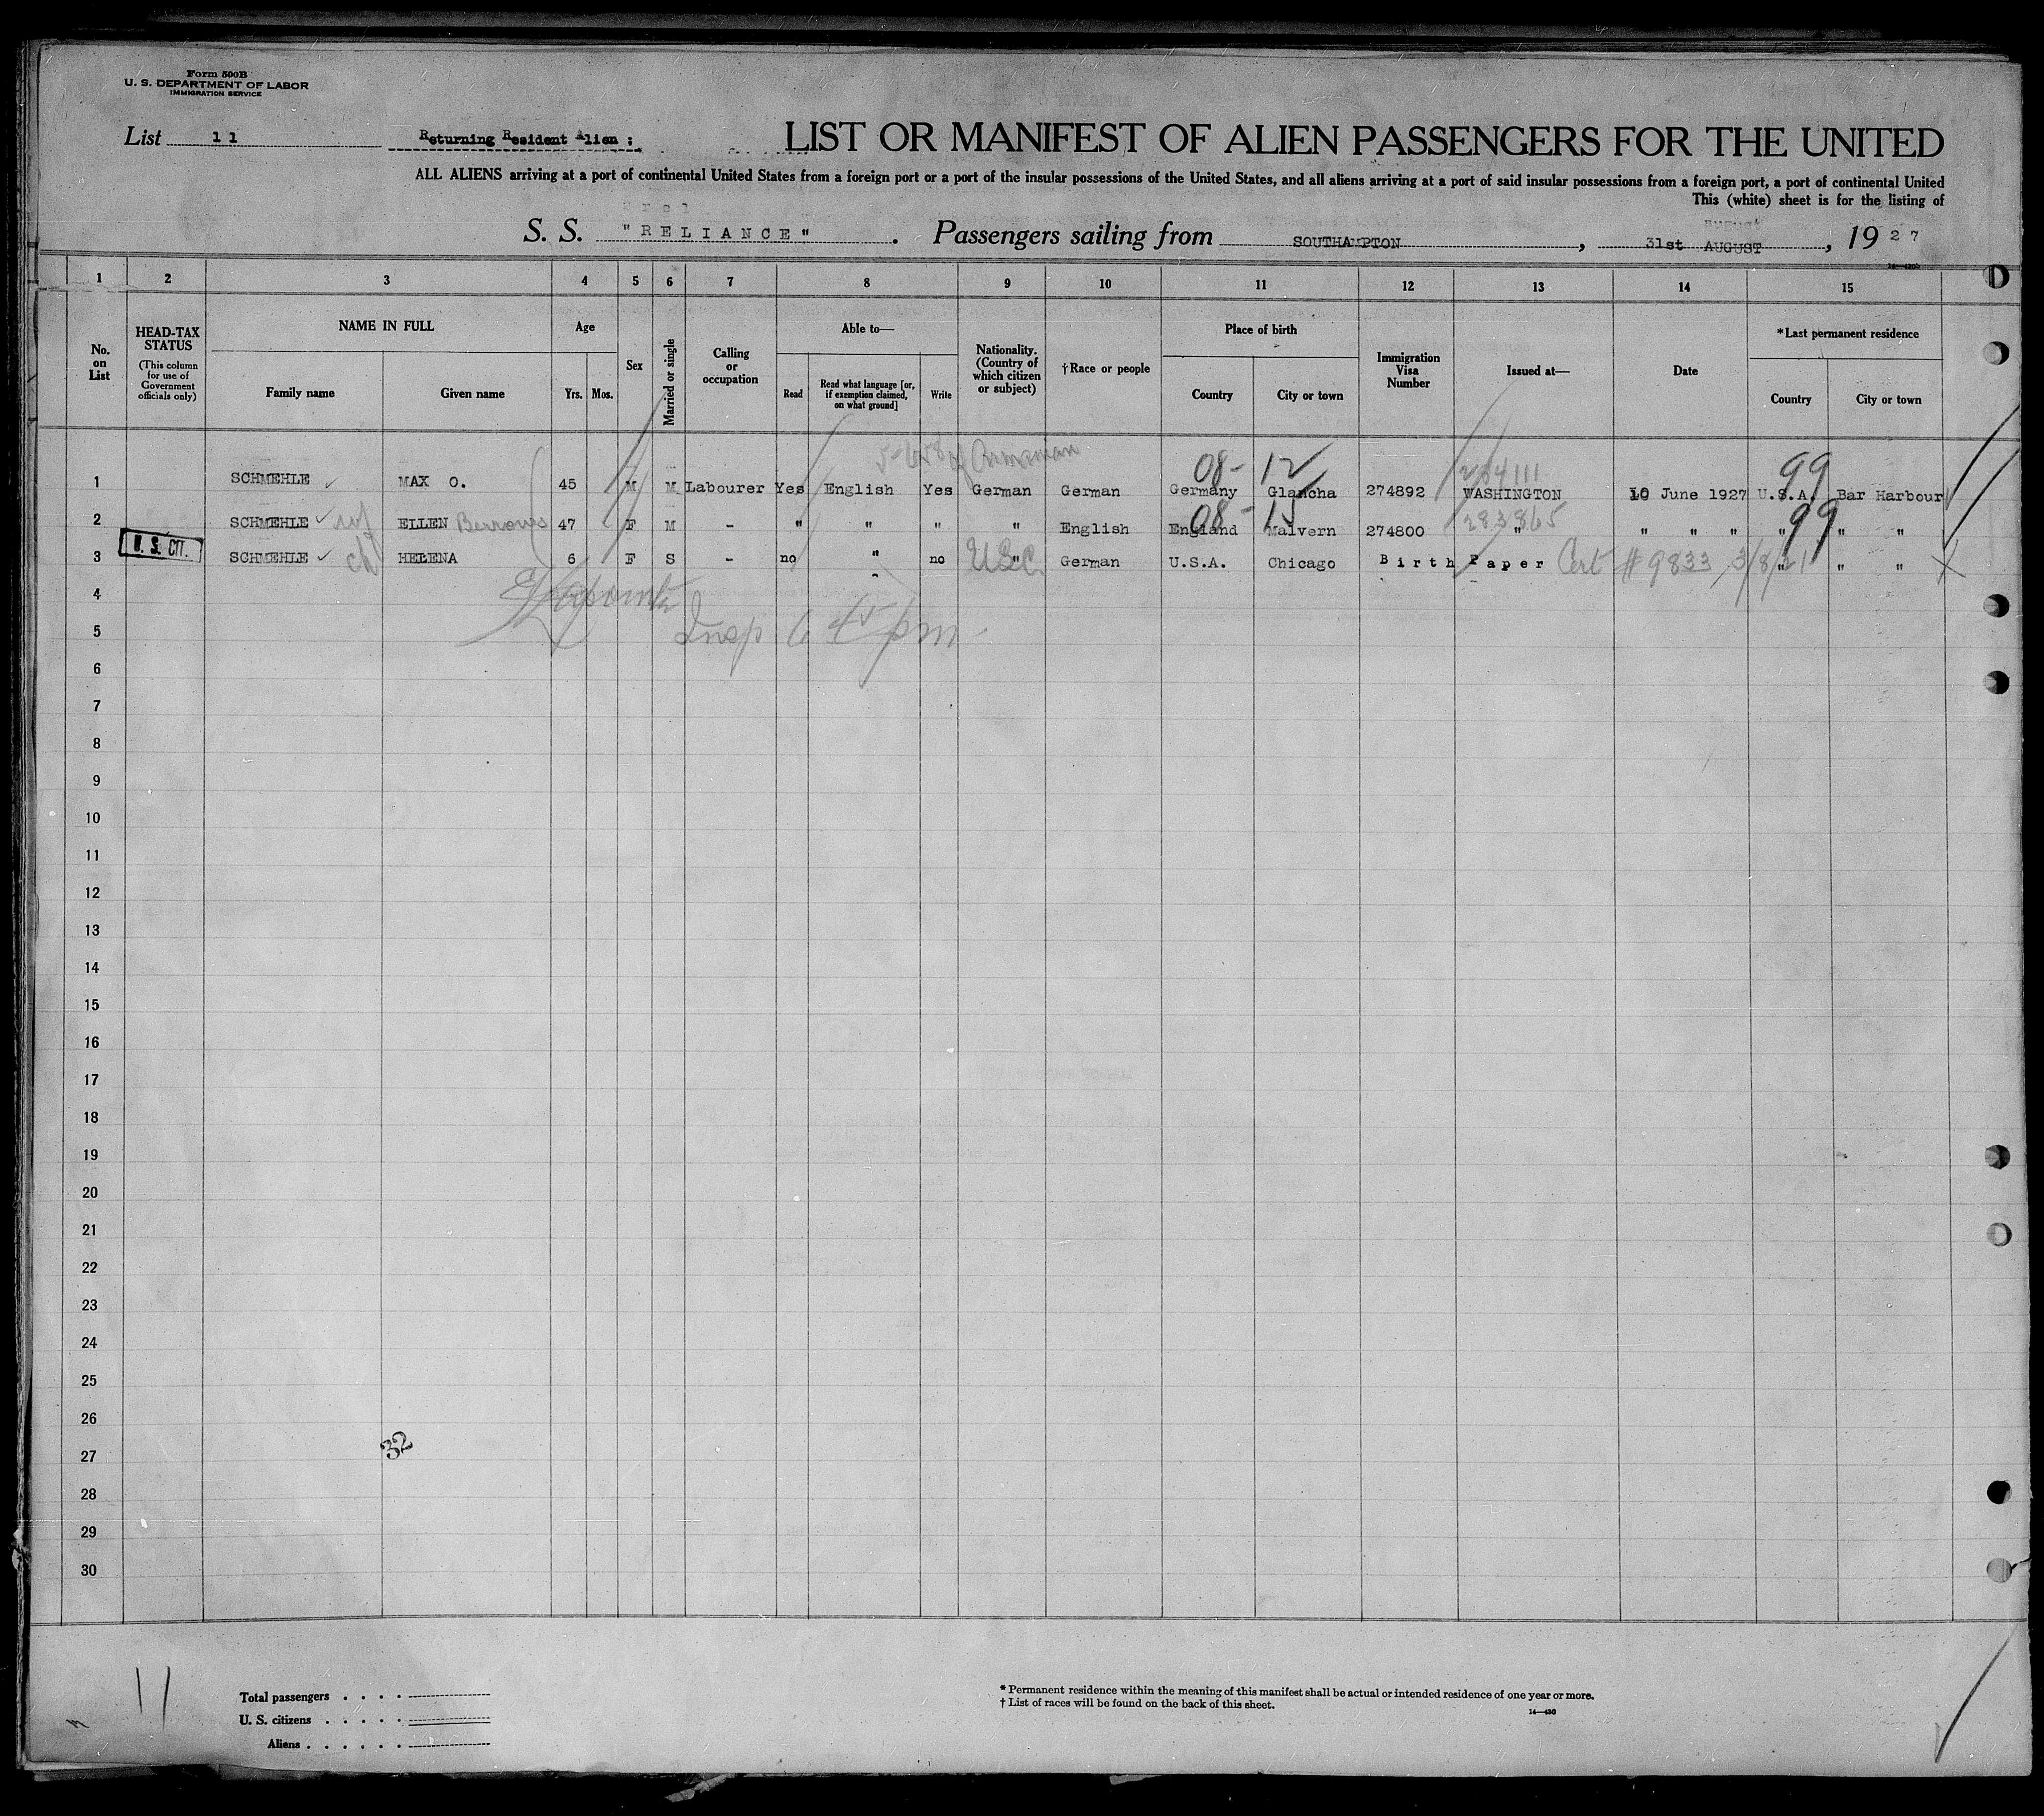 Form 500B
U. S. DEPARTMENT OF LABOR
IMMIGRATION SERVICE
List 11 Returning Resident Alien : LIST OR MANIFEST OF ALIEN PASSENGERS FOR THE UNITED
ALL ALIENS arriving at a port of continental United States from a foreign port or a port of the insular possessions of the United States, and all aliens arriving at a port of said insular possessions from a foreign port, a port of continental United
This (white) sheet is for the listing of
S. S. "RELIANCE" . Passengers sailing from SOUTHAMPTON , 31st AUGUST , 1927
1 2 3 4 5 6 7 8 9 10 11 12 13 14 15
No. on List
HEAD-TAX STATUS
(This column for use of Government officials only)
NAME IN FULL
Family name Given name
Age
Yrs. Mos.
Sex
Married or single
Calling or occupation
Able to—
Read
Read what language [or, if exemption claimed, on what ground]
Write
Nationality. (Country of which citizen or subject)
†Race or people
Place of birth
Country City or town
Immigration Visa Number
Issued at—
Date
*Last permanent residence
Country City or town
08- 12 99
1 SCHMEHLE MAX O. 45 M M Labourer Yes English Yes German German Germany Glancha 274892 WASHINGTON 10 June 1927 U.S.A. Bar Harbour
08- 15 283865 99
2 SCHMEHLE wf ELLEN Berrows 47 F M - " " " " English England Malvern 274800 " " " " " " "
U. S. CIT.
3 SCHMEHLE ch HELENA 6 F S - no " no " USC German U.S.A. Chicago Birth Paper Cert #9833, 3/8/21 " " "
4
5 Insp 6 45 pm
6
7
8
9
10
11
12
13
14
15
16
17
18
19
20
21
22
23
24
25
26
32
27
28
29
30
11
Total passengers . . . .
U. S. citizens . . . . .
Aliens . . . . . .
* Permanent residence within the meaning of this manifest shall be actual or intended residence of one year or more.
† List of races will be found on the back of this sheet.
14—430